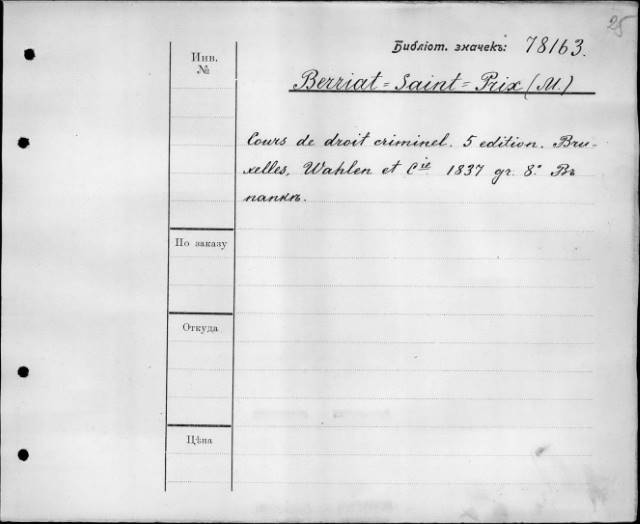 25
Библіот. значекъ: 78163.
Инв.
№
Berriat=Saint=Prix (M.)
Cours de droit criminel. 5 edition. Bru-
xelles, Wahlen et Cie 1837 gr. 8.° Въ
папкѣ.
По заказу
Откуда
Цѣна